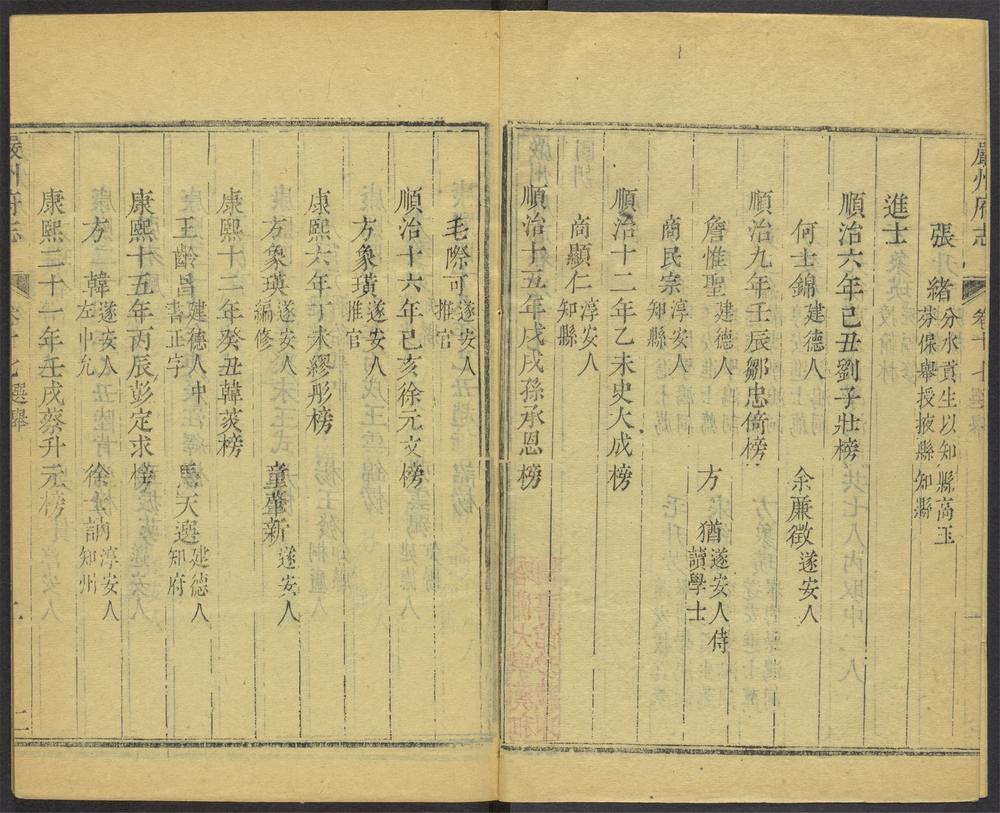 嚴州府志
卷十七選舉
張 緒分水貢生以知縣高玉
芬保舉授掖縣知縣
進士
順治六年己丑劉子壯榜
何士錦建德人 余廉徵遂安人
順治九年壬辰鄒忠倚榜
詹惟聖建德人 方 猶遂安人侍
讀學士
商民宗淳安人
知縣
順治十二年乙未史大成榜
商顯仁淳安人
知縣
順治十五年戊戌孫承恩榜
毛際可遂安人
推官
順治十六年己亥徐元文榜
方象璜遂安人
推官
康熙六年丁未繆彤榜
方象瑛遂安人
編修 童肇新遂安人
康熙十二年癸丑韓菼榜
王齡昌建德人中
書正字 馬天選建德人
知府
康熙十五年丙辰彭定求榜
方 韓遂安人
左中允 徐士訥淳安人
知州
康熙二十一年壬戌蔡升元榜
嚴州府志
卷十七選舉
二